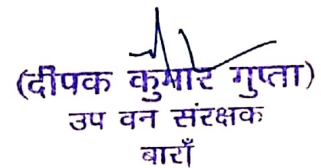 (दीपक कुमार गुप्ता)
उप वन संरक्षक
बाराँ